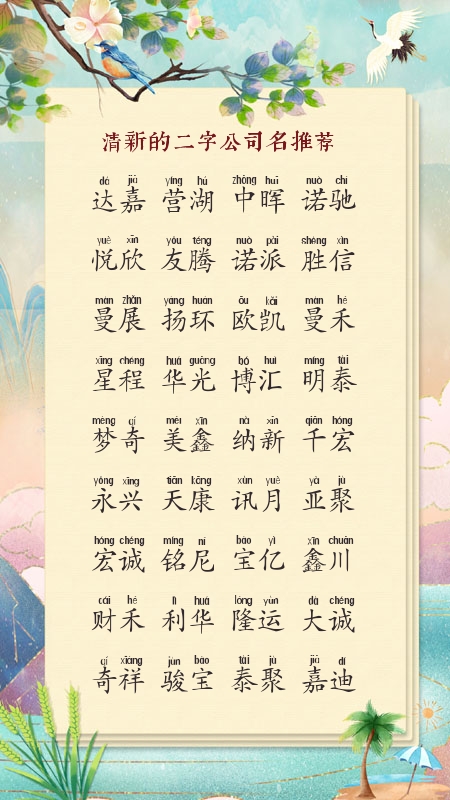 清新的二字公司名推荐
dá jiā yíng hú zhōng huī nuò chí
达嘉 营湖 中晖 诺驰
yuè xīn yǒu téng nuò pài shèng xìn
悦欣 友腾 诺派 胜信
màn zhǎn yáng huán ōu kǎi màn hé
曼展 扬环 欧凯 曼禾
xīng chéng huá guāng bó huì míng tài
星程 华光 博汇 明泰
mèng qí měi xīn nà xīn qiān hóng
梦奇 美鑫 纳新 千宏
yǒng xīng tiān kāng xùn yuè yà jù
永兴 天康 讯月 亚聚
hóng chéng míng ní bǎo yì xīn chuān
宏诚 铭尼 宝亿 鑫川
cái hé lì huá lóng yùn dà chéng
财禾 利华 隆运 大诚
qí xiáng jùn bǎo tài jù jiā dí
奇祥 骏宝 泰聚 嘉迪